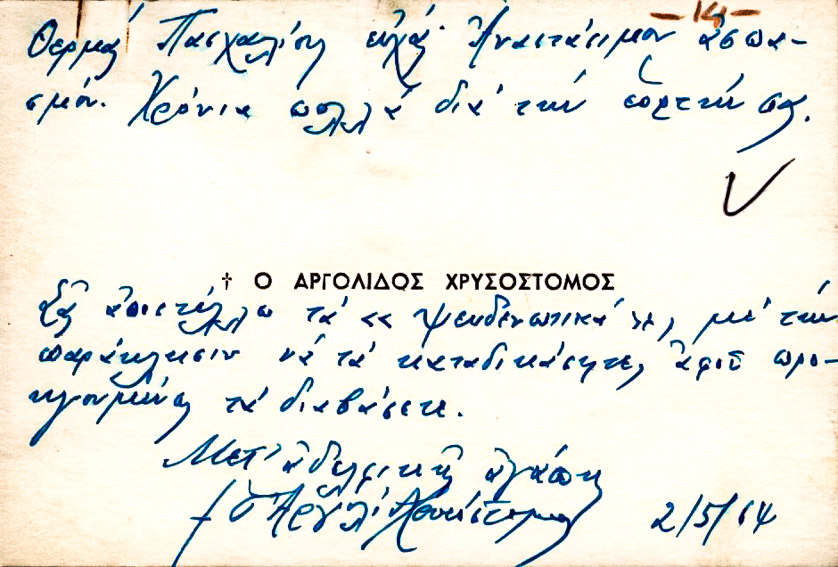 -14-
Θερμάς Πασχαλίους εὐχάς. Ἀναστάσιμον ἀσπα-
σμόν. Χρόνια πολλά διά τήν ἑορτήν σας.
† Ο ΑΡΓΟΛΙΔΟΣ ΧΡΥΣΟΣΤΟΜΟΣ
Σᾶς ἀποστέλλω τά «ψευδενωτικά», μέ τήν
παράκλησιν νά τά καταδικάσητε, ἀφοῦ προ-
ηγουμένως τά διαβάσετε.
Μετ' ἀδελφικῆς ἀγάπης
† ὁ Ἀργολίδος Χρυσόστομος 2/5/64